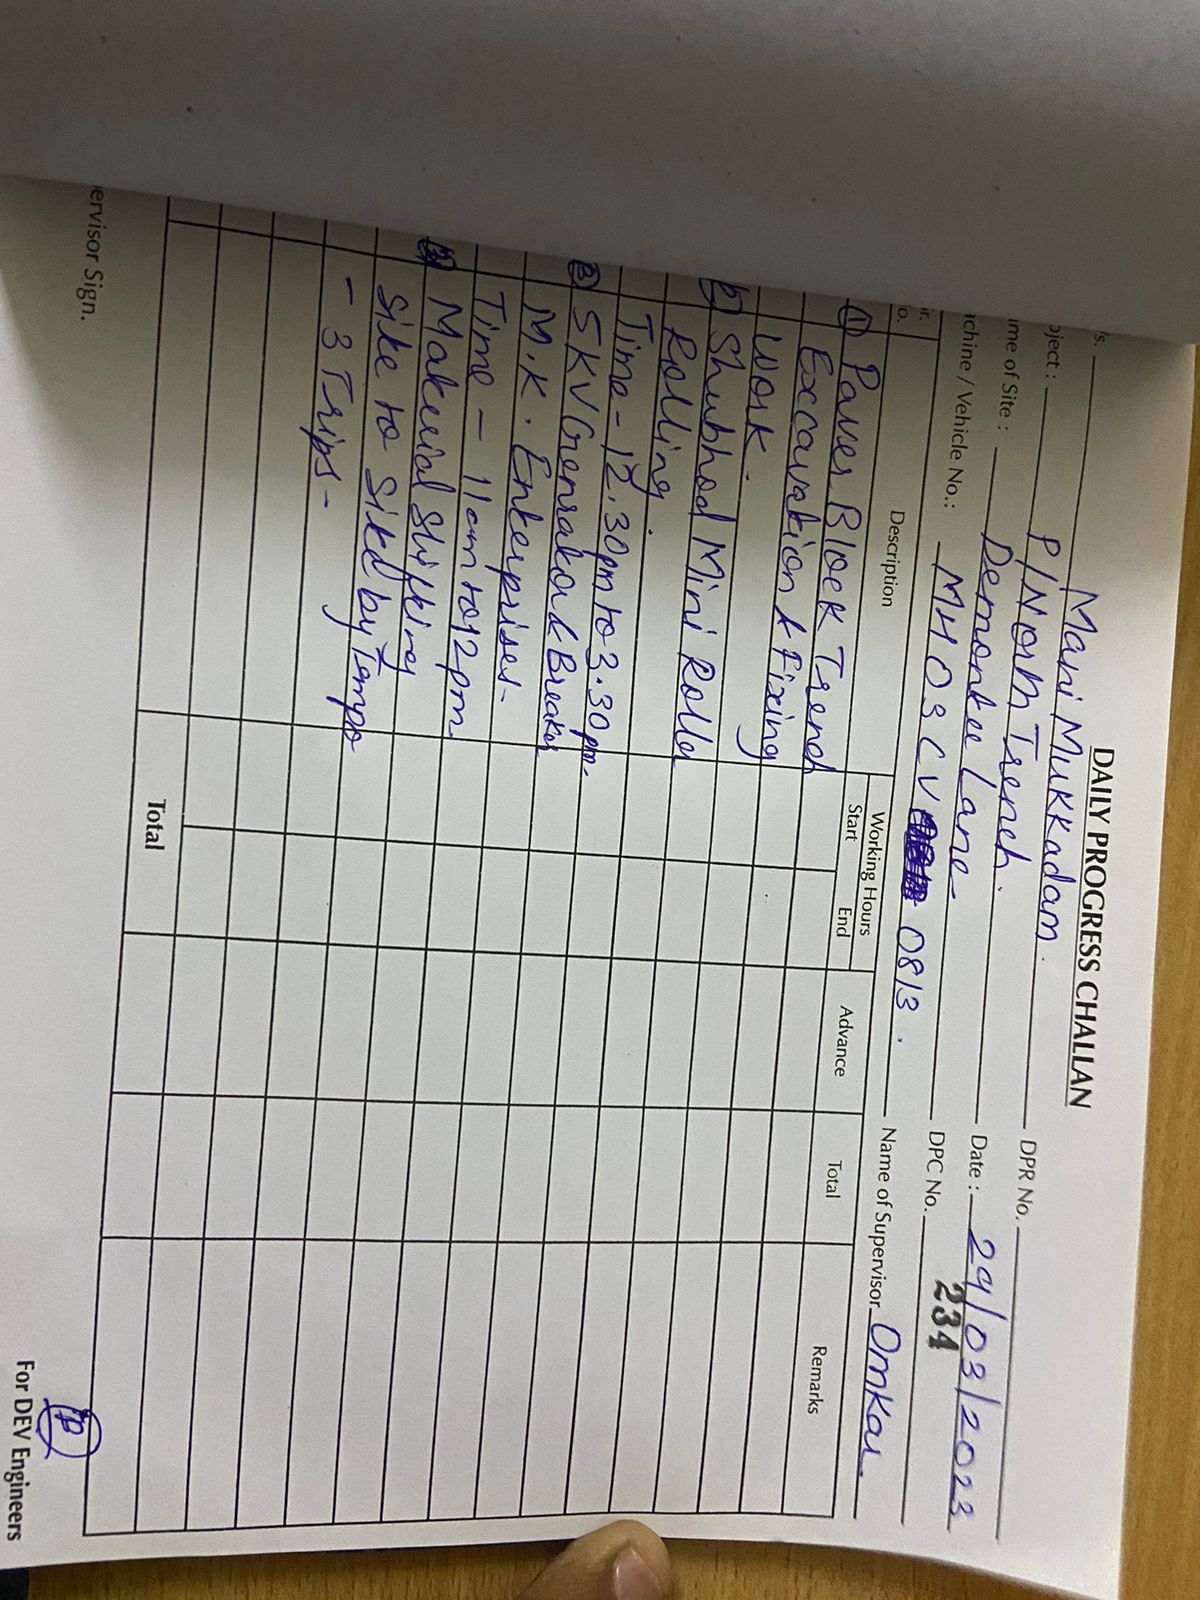 DAILY PROGRESS CHALLAN
/s. Mani Mukkadam. DPR No.
oject : P/Norm Trench. Date : 29/03/2023
me of Site : Demontee Lane- DPC No. 234
achine / Vehicle No.: MH 03 CV 0813. Name of Supervisor Omkar
r. o. Description Working Hours Start End Advance Total Remarks
① Paver Block Trench
Exccavation & Fixing
work.
② Shubhod Mini Roller
Rolling.
Time- 12.30pm to 3.30pm-
③ 5KV Genrator & Breaker
M.K. Enterprises-
Time - 11am to 12pm
④ Material Shifting
Site to Sited by Tempo
- 3 Trips -
Total
ervisor Sign.
For DEV Engineers